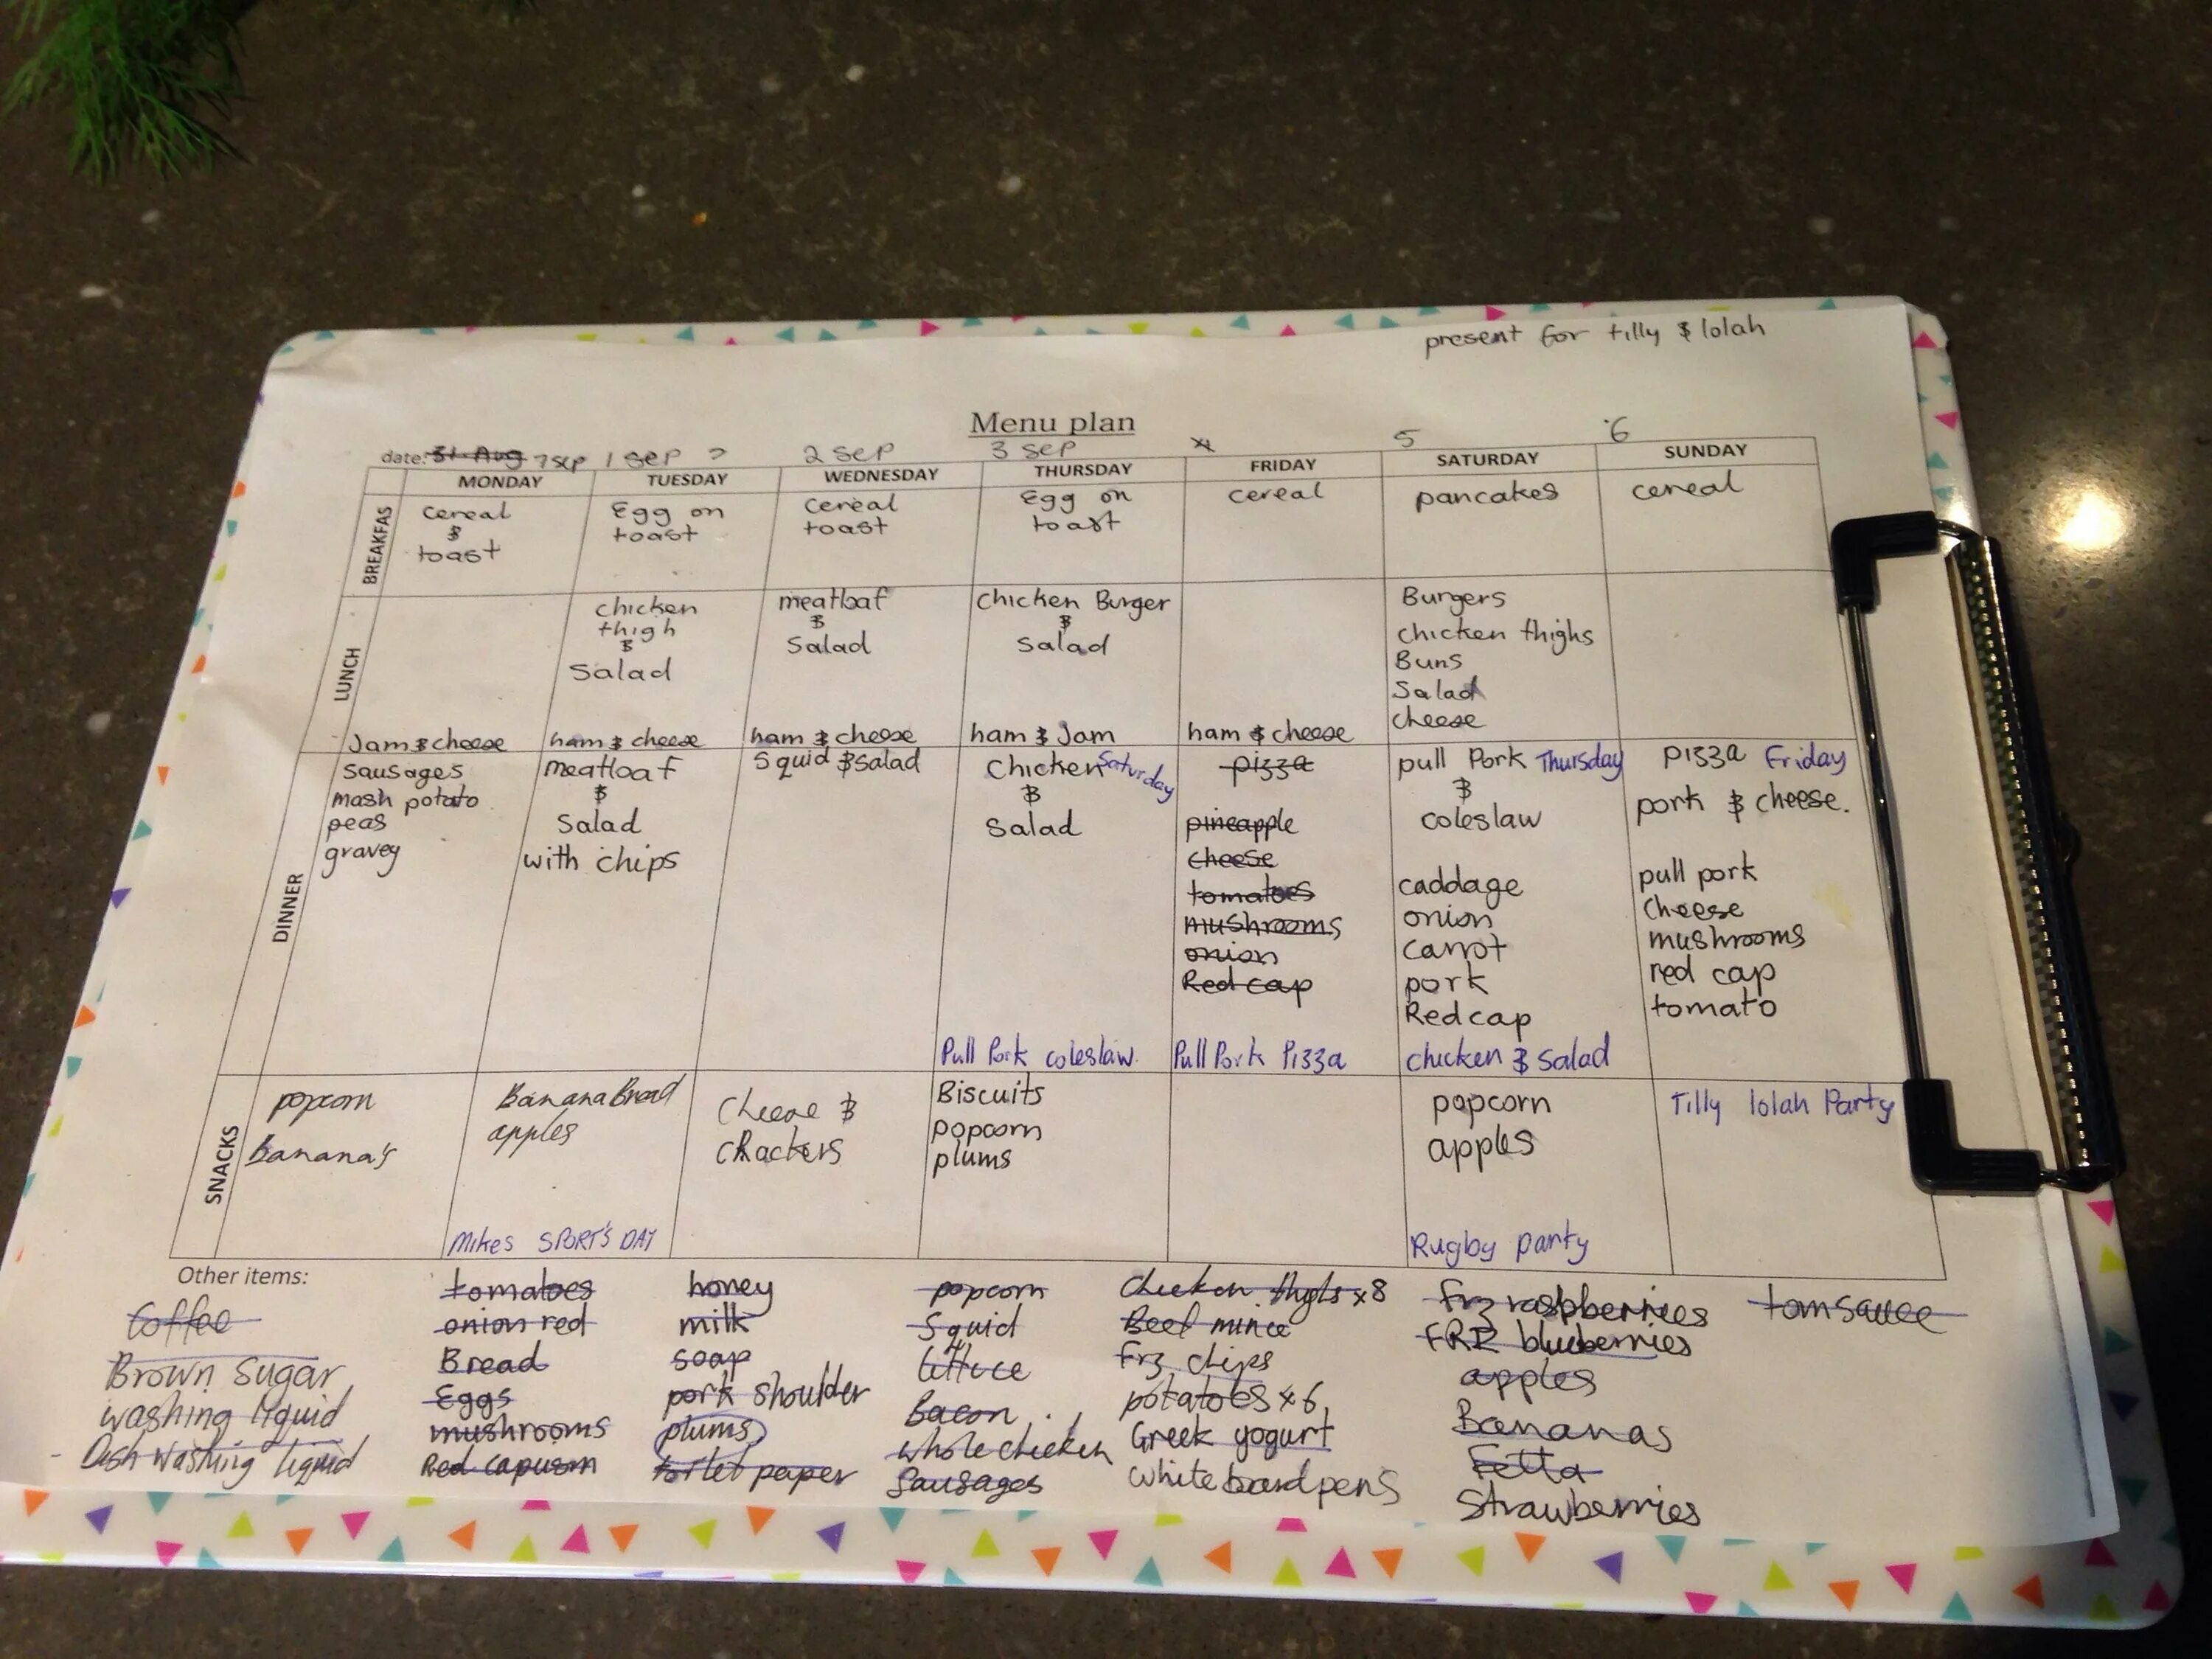 present for tilly & lolah
Menu plan
date: 31 Aug 7 sep 1 sep 2 sep 3 sep 4 5 6
MONDAY TUESDAY WEDNESDAY THURSDAY FRIDAY SATURDAY SUNDAY
BREAKFAS
cereal
&
toast
Egg on
toast
cereal
toast
Egg on
toast
cereal
pancakes
cereal
LUNCH
Jam & cheese
chicken
thigh
&
Salad
ham & cheese
meatloaf
&
Salad
ham & cheese
Chicken Burger
&
Salad
ham & Jam
ham & cheese
Burgers
chicken thighs
Buns
Salad
cheese
DINNER
sausages
mash potato
peas
gravey
meatloaf
&
Salad
with chips
Squid & Salad
Chicken Saturday
&
Salad
Pull Pork coleslaw.
pizza
pineapple
cheese
tomatoes
mushrooms
onion
Red cap
Pull Pork Pizza
pull Pork Thursday
&
coleslaw
caddage
onion
carrot
pork
Red cap
chicken & Salad
pizza Friday
pork & cheese.
pull pork
Cheese
mushrooms
red cap
tomato
SNACKS
popcorn
banana's
Banana Bread
apples
Mikes SPORT'S DAY
Cheese &
CRackers
Biscuits
popcorn
plums
popcorn
apples
Rugby party
Tilly lolah Party
Other items:
Coffee
Brown Sugar
washing liquid
- Dish washing liquid
tomatoes
onion red
Bread
Eggs
mushrooms
Red capusm
honey
milk
soap
pork shoulder
plums
toilet paper
popcorn
Squid
lettuce
Bacon
whole chicken
Sausages
Chicken thighs x8
Beef mince
Frz chips
potatoes x6
Greek yogurt
White board pens
Frz raspberries
FRZ blueberries
apples
Bananas
Fetta
Strawberries
tom sauce